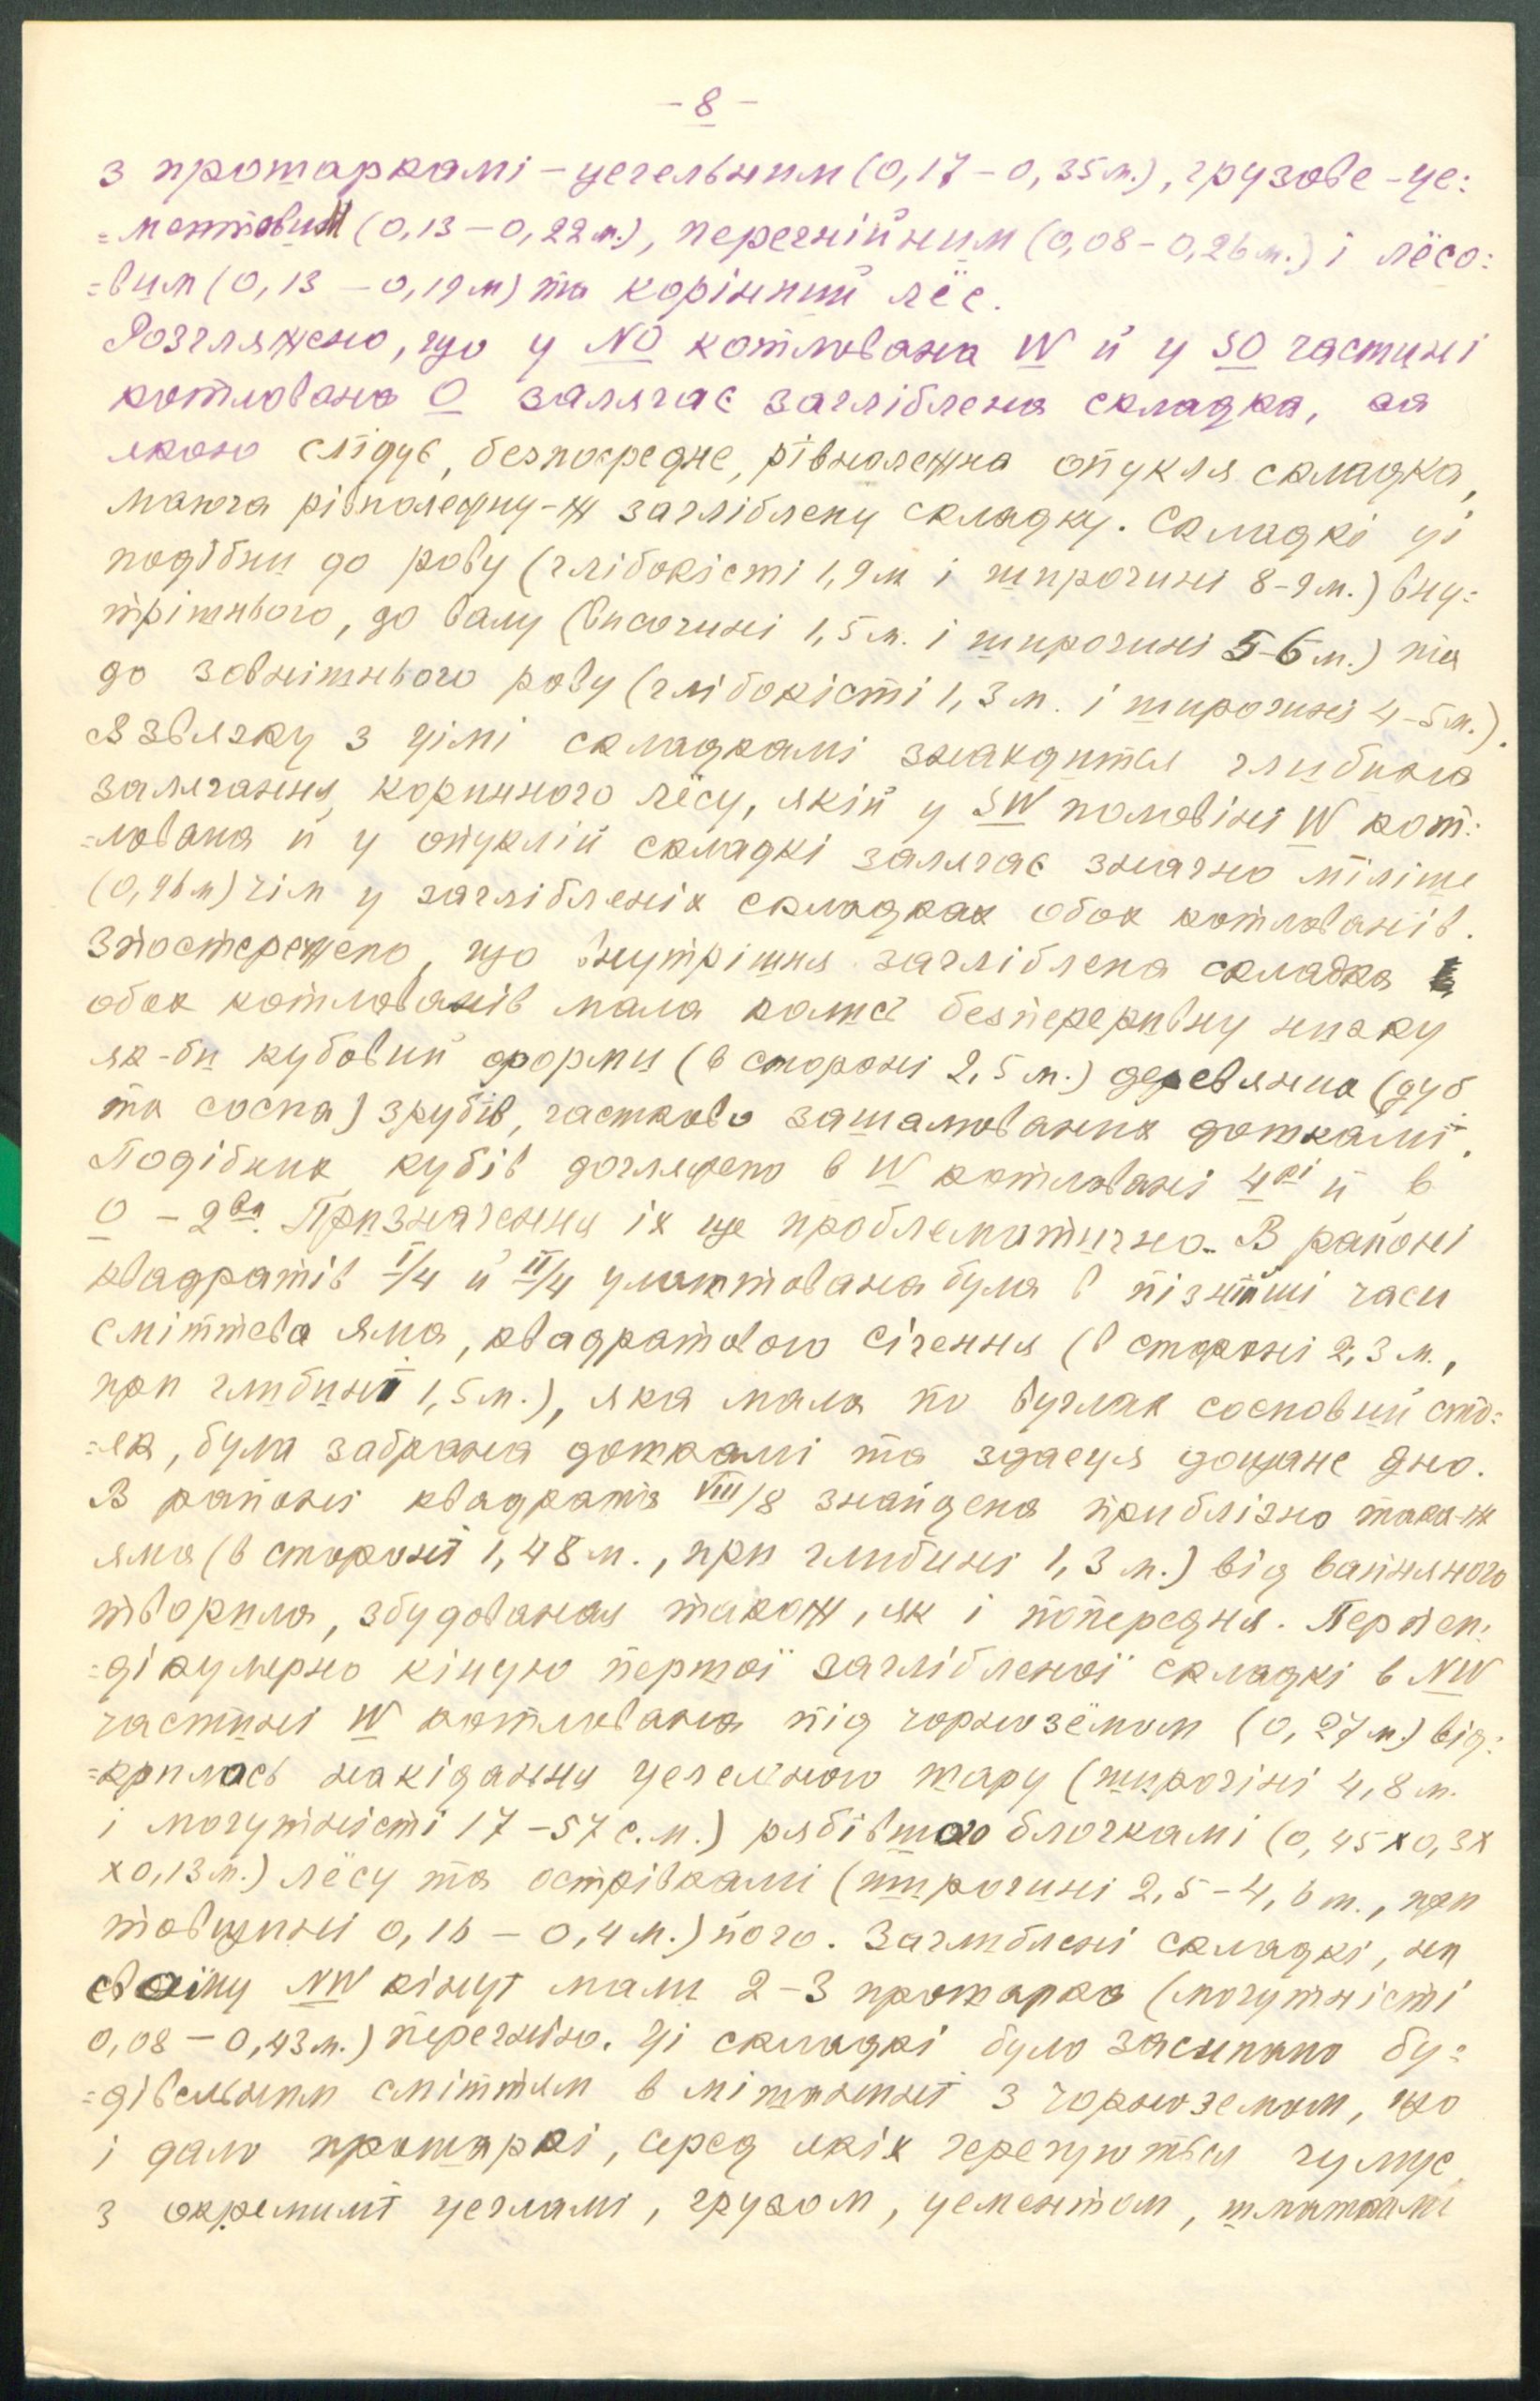 - 8 -
з прошаркамі - цегельним (0,17 - 0,35 м.), грузове - це:
= ментовим (0,13 - 0,22 м.), перегнійним (0,08 - 0,26 м.) і лёсо:
= вим (0,13 - 0,19 м) та корінний лёс.
Розгляжено, що у NO котлована W й у SO частині
котлована O залягає загліблена складка, за
якою слідує, безпосредне, рівнолежна опукля складка,
маюча рівнолежну-ж загліблену складку. Складкі ці
подібни до рову (глібокісті 1,9 м і широчині 8-9 м.) вну:
трішнього, до валу (височині 1,5 м. і широчині 5-6 м.) та
до зовнішнього рову (глібокісті 1,3 м. і широчині 4-5 м.).
В звязку з цімі складкамі знаходится глибина
залягання коринного лёсу, якій у SW половіні W кот:
= лована й у опуклій складкі залягає значно міліше
(0,96 м) чім у загліблених складках обох котлованів.
Зпостережено, що внутрішня загліблена складка
обох котлованів мала безперерывну низку
як-би кубовий форми (в стороні 2,5 м.) деревяних (дуб
та сосна) зрубів, частково зашальованих дошкамі.
Подібних кубів доглежено в W котловані 4рі й в
O - 2ва. Призначення іх ще проблематично. В районі
квадратів I/4 й II/4 улаштована була в пізніші часи
сміттєва яма, квадратового січення (в стороні 2,3 м.,
при глибині 1,5 м.), яка мала по вуглах сосновий сто:
= як, була забрана дошкамі та здаеця дощане дно.
В районі квадрата VIII/8 знайдена приблізно така-ж
яма (в стороні 1,48 м., при глибині 1,3 м.) від вапняного
творила, збудованая також, як і попередня. Перпен:
= дікулярно кінцю першої заглібленої складкі в NW
частині W котлована під чорнозёмом (0,27 м.) від:
= крилась накіданню цегельного шару (широчіні 4,8 м.
і могутністі 17 - 57 с.м.) рябівшого блочкамі (0,45 x 0,3 x
x 0,13 м.) лёсу та острівкамі (широчині 2,5 - 4,6 м., при
товщині 0,16 - 0,4 м.) його. Заглиблені складкі, на
своіму NW кінці мали 2 - 3 прошарка (могутністі
0,08 - 0,43 м.) перегнію. Ці складкі було засипано бу:
= дівельним сміттям в мішанині з чорноземом, що
і дало прошаркі, серед якіх черегуються гумус
з окремимі цегламі, грузом, цементом, шматкамі